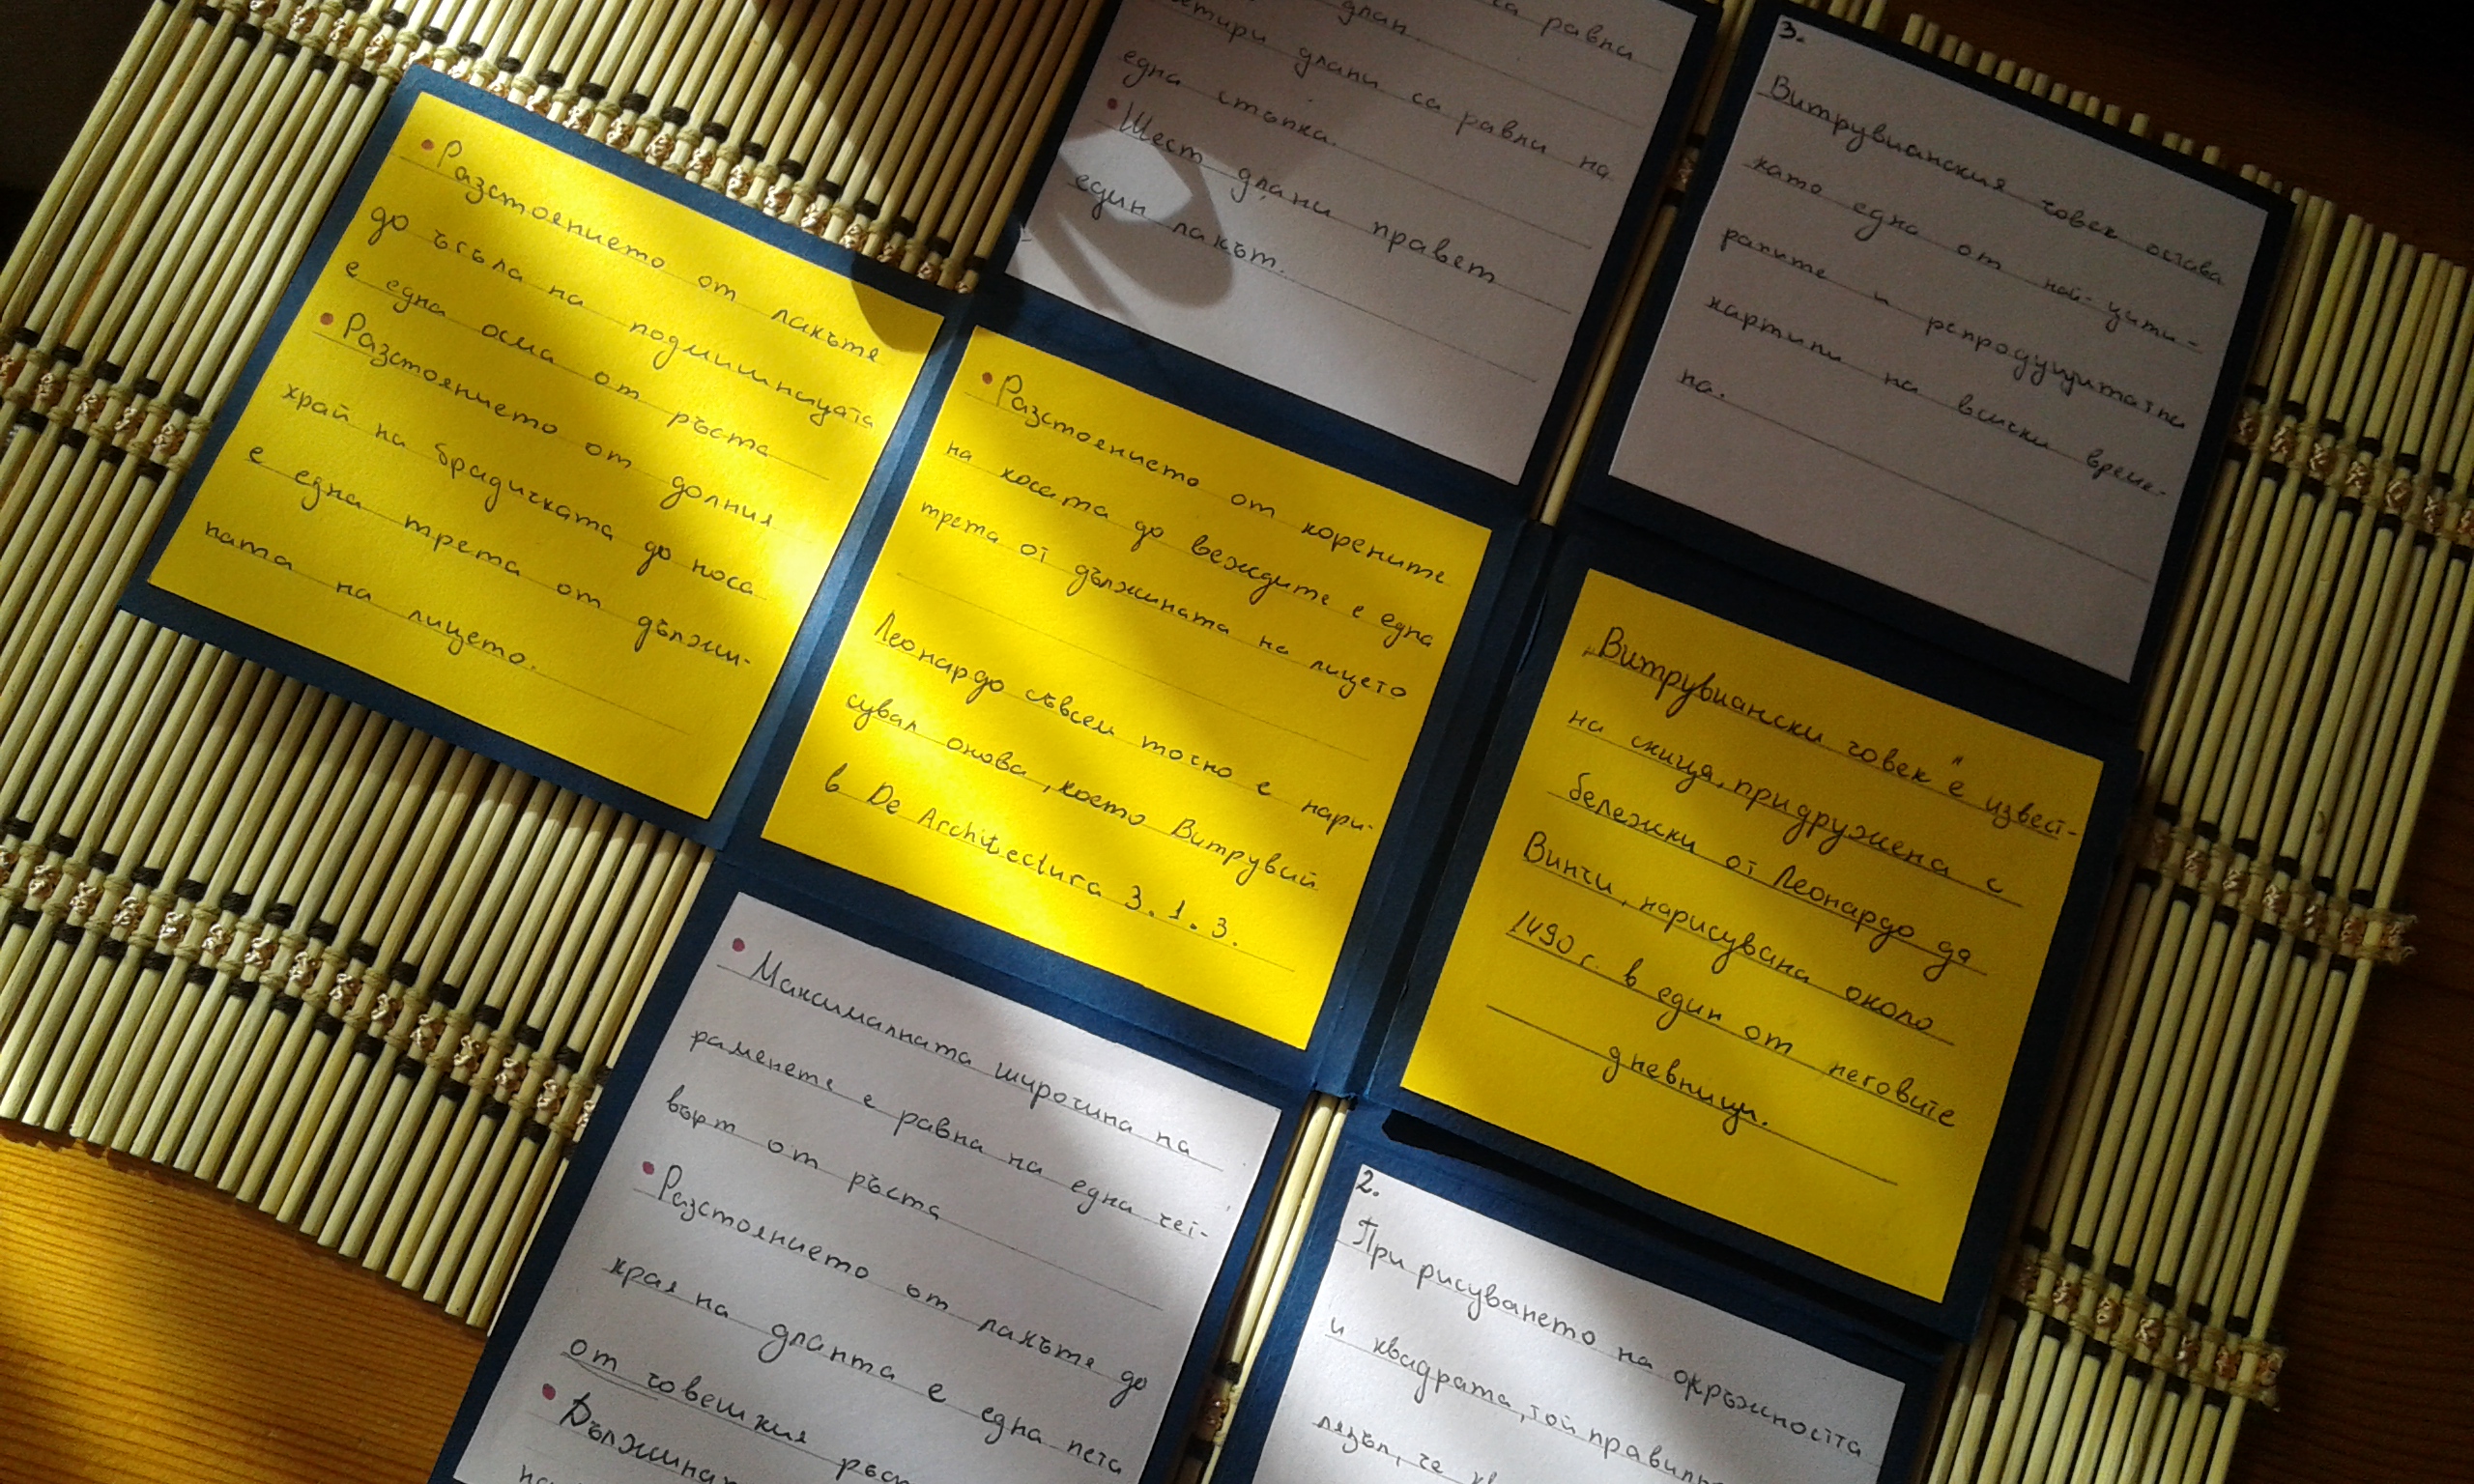 • Разстоянието от лакътя
до ъгъла на подмишницата
е една осма от ръста
• Разстоянието от долния
край на брадичката до носа
е една трета от дължи-
ната на лицето.
са равни
длан.
четири длани са равни на
една стъпка.
• Шест длани правят
един лакът.
3.
Витрувианския човек остава
като една от най-цити-
раните и репродуцирани
картини на всички време-
на.
• Разстоянието от корените
на косата до веждите е една
трета от дължината на лицето
Леонардо съвсем точно е нари-
сувал онова, което Витрувий
в De Architectura 3.1.3.
„Витрувиански човек" е извест-
на скица, придружена с
бележки от Леонардо да
Винчи, нарисувана около
1490 г. в един от неговите
дневници.
• Максималната широчина на
раменете е равна на една чет-
върт от ръста
• Разстоянието от лакътя до
края на дланта е една пета
от човешкия
•
2.
При рисуването на окръжността
и квадрата, той
че